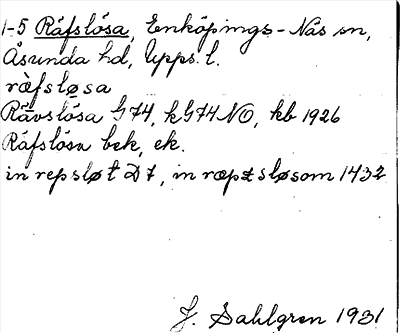 1-5 Räfslösa, Enköpings-Näs sn,
Åsunda hd, Upps. l.
ràfsløsa
Rävslösa G74, kG74NO, kb 1926
Räfslösa bek, ek.
in repsløt D7, in ræpzsløsom 1432
J. Sahlgren 1931